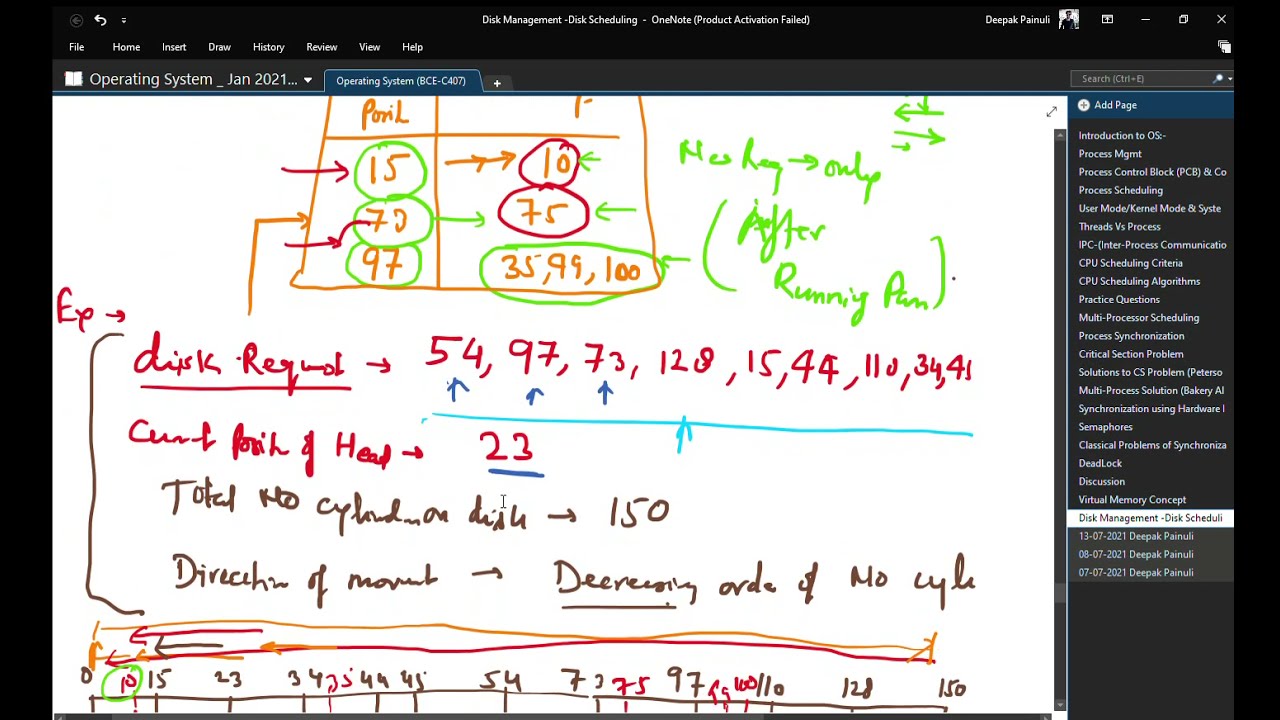 Disk Management -Disk Scheduling - OneNote (Product Activation Failed)
Deepak Painuli
File Home Insert Draw History Review View Help
Operating System _ Jan 2021...
Operating System (BCE-C407)
Search (Ctrl+E)
Add Page
Introduction to OS:-
Process Mgmt
Process Control Block (PCB) & Co
Process Scheduling
User Mode/Kernel Mode & Syste
Threads Vs Process
IPC-(Inter-Process Communicatio
CPU Scheduling Criteria
CPU Scheduling Algorithms
Practice Questions
Multi-Processor Scheduling
Process Synchronization
Critical Section Problem
Solutions to CS Problem (Peterso
Multi-Process Solution (Bakery Al
Synchronization using Hardware I
Semaphores
Classical Problems of Synchroniza
DeadLock
Discussion
Virtual Memory Concept
Disk Management -Disk Scheduli
13-07-2021 Deepak Painuli
08-07-2021 Deepak Painuli
07-07-2021 Deepak Painuli
Posit
15 → 10
73 → 75
97 35, 99, 100
→ only
After
Running
Ex →
disk Request → 54, 97, 73, 128, 15, 44, 110, 34, 45
Curnt Posit of Head → 23
Total No cylinder on disk → 150
Direction of → Decreasing order of No cyle
0 10 15 23 34 35 44 45 54 73 75 97 99 100 110 128 150